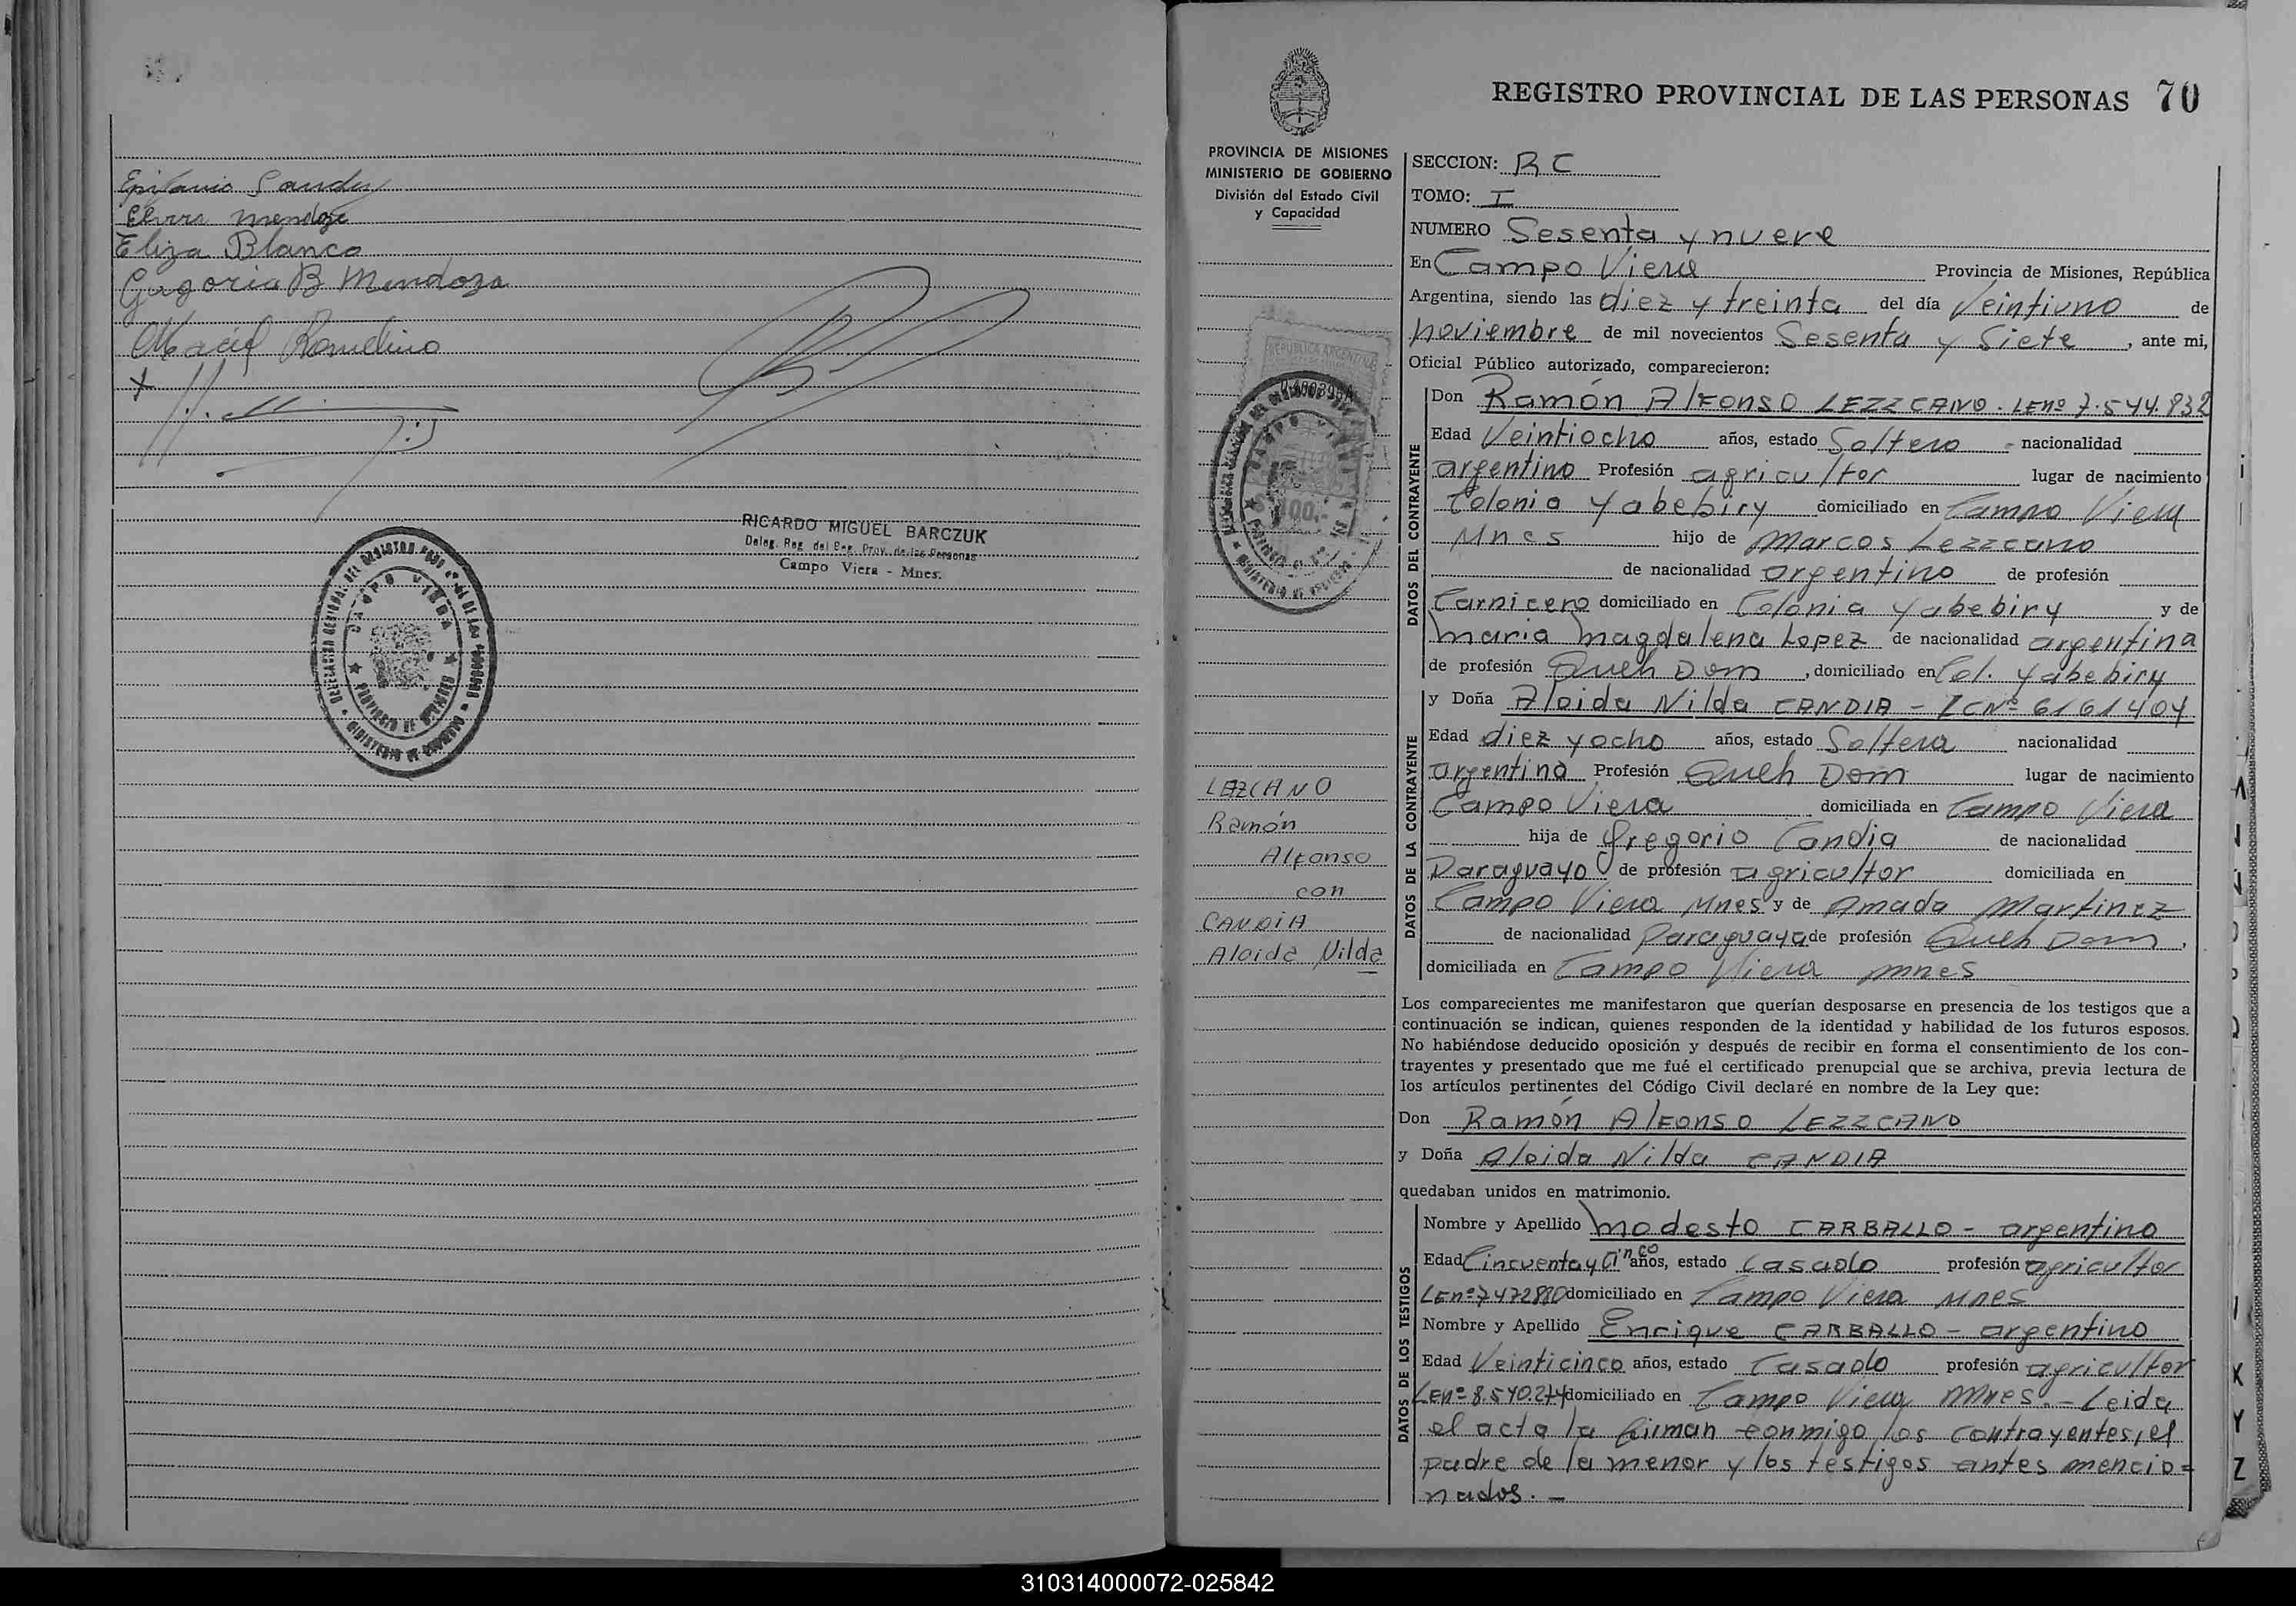 Epifanio Sandez
Elvira Mendoze
Eliza Blanco
Gregoria B Mendoza
Maciel Romelino
RICARDO MIGUEL BARCZUK
Deleg. Reg. del Reg. Prov. de las Personas
Campo Viera - Mnes.
CAMPO VIERA
PROVINCIA DE MISIONES
REGISTRO PROVINCIAL DE LAS PERSONAS 70
PROVINCIA DE MISIONES
MINISTERIO DE GOBIERNO
División del Estado Civil
y Capacidad
REPUBLICA ARGENTINA
100.-
LEZCANO
Ramón
Alfonso
con
CANDIA
Aloida Nilda
SECCION: RC
TOMO: I
NUMERO Sesenta y nueve
En Campo Viera Provincia de Misiones, República
Argentina, siendo las diez y treinta del día Veintiuno de
noviembre de mil novecientos Sesenta y Siete, ante mi,
Oficial Público autorizado, comparecieron:
DATOS DEL CONTRAYENTE
Don Ramón Alfonso LEZZCANO. LEnº 7.544.832
Edad Veintiocho años, estado Soltero - nacionalidad
argentino Profesión agricultor lugar de nacimiento
Colonia Yabebiry domiciliado en Campo Viera
Mnes hijo de Marcos Lezzcano
de nacionalidad argentino de profesión
Carnicero domiciliado en Colonia Yabebiry y de
Maria Magdalena Lopez de nacionalidad argentina
de profesión Queh Dom, domiciliado en Col. Yabebiry
DATOS DE LA CONTRAYENTE
y Doña Aloida Nilda CANDIA - LCNº 6161404
Edad diez y ocho años, estado Soltera nacionalidad
argentina Profesión Queh Dom lugar de nacimiento
Campo Viera domiciliada en Campo Viera
hija de Gregorio Candia de nacionalidad
Paraguayo de profesión agricultor domiciliada en
Campo Viera Mnes y de Amada Martinez
de nacionalidad Paraguaya de profesión Queh Dom,
domiciliada en Campo Viera Mnes
Los comparecientes me manifestaron que querían desposarse en presencia de los testigos que a
continuación se indican, quienes responden de la identidad y habilidad de los futuros esposos.
No habiéndose deducido oposición y después de recibir en forma el consentimiento de los con-
trayentes y presentado que me fué el certificado prenupcial que se archiva, previa lectura de
los artículos pertinentes del Código Civil declaré en nombre de la Ley que:
Don Ramón Alfonso LEZZCANO
y Doña Aloida Nilda CANDIA
quedaban unidos en matrimonio.
DATOS DE LOS TESTIGOS
Nombre y Apellido Modesto CARBALLO - argentino
Edad Cincuenta y Cinco años, estado Casado profesión agricultor
LEnº 7472880 domiciliado en Campo Viera Mnes
Nombre y Apellido Enrique CARBALLO - argentino
Edad Veinticinco años, estado Casado profesión agricultor
LEnº 8.540.274 domiciliado en Campo Viera Mnes. - Leida
el acta la firman conmigo los contrayentes, el
padre de la menor y los testigos antes mencio=
nados. -
310314000072-025842